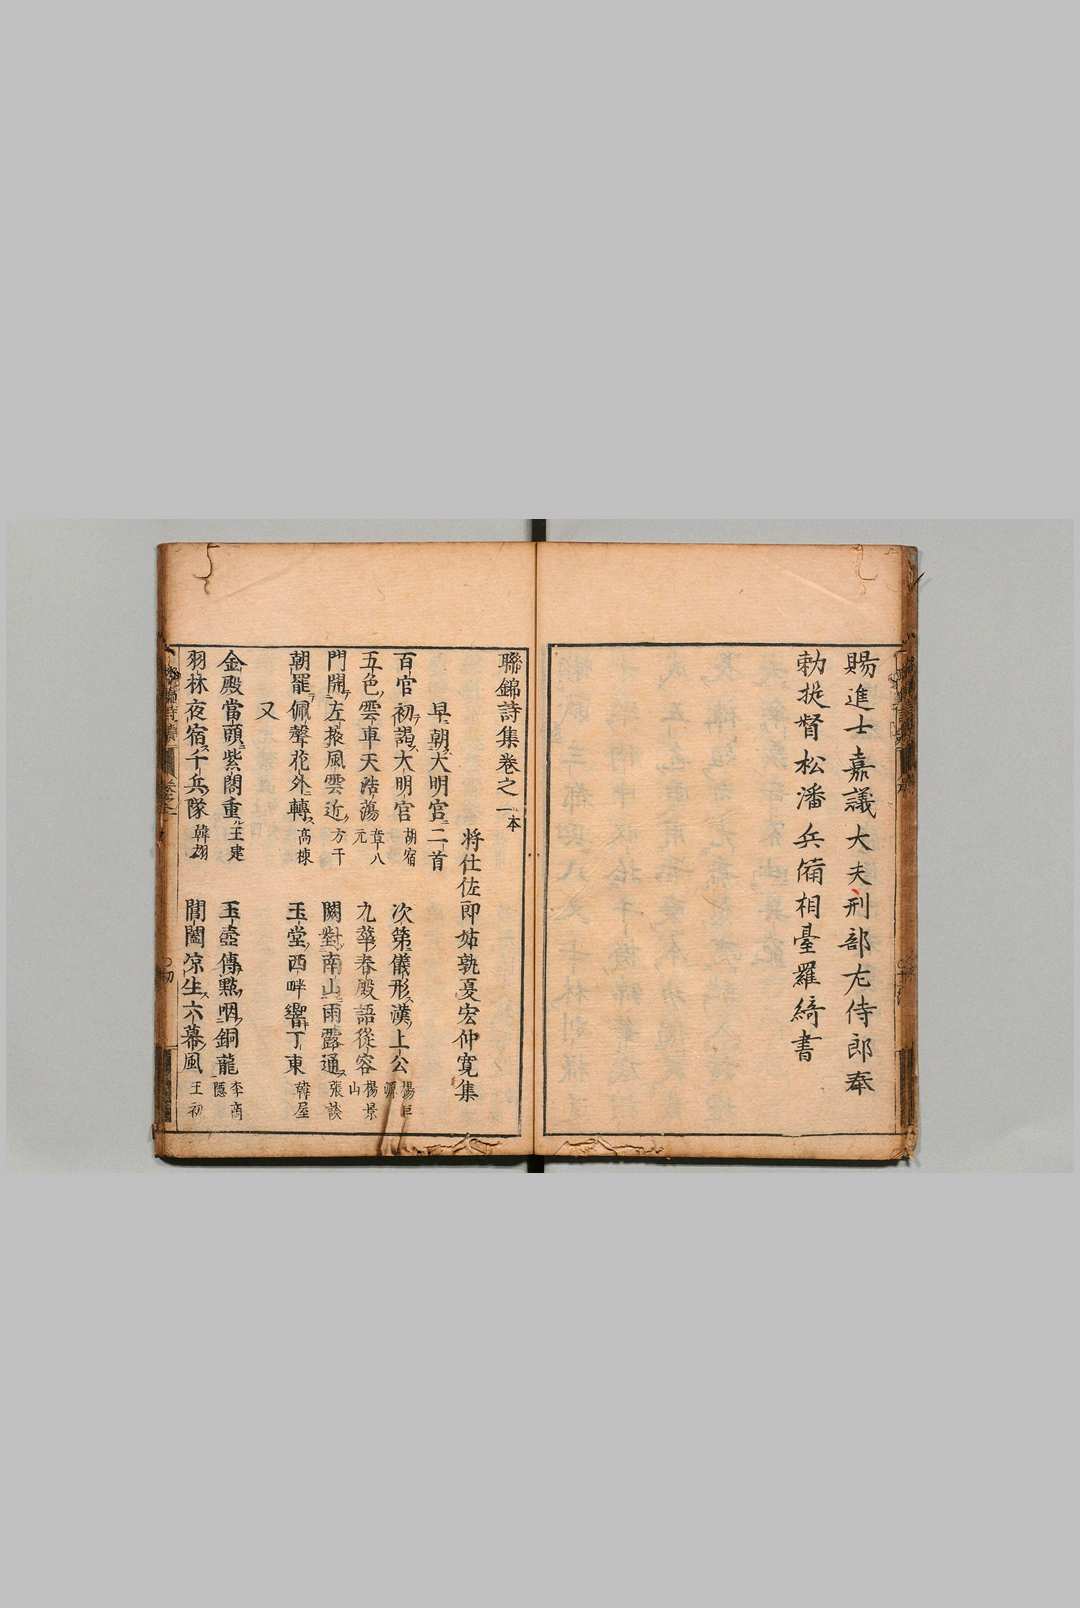 賜進士嘉議大夫刑部左侍郎奉
勅提督松潘兵備相臺羅綺書
聯錦詩集卷之一本
将仕佐郎姑孰夏宏仲寛集
早朝大明宮二首
百官初謁大明宮 胡宿 次第儀形漢上公 楊巨源
五色雲車天浩蕩 袁八元 九華春殿語從容 楊景山
門開左掖風雲近 方干 闕對南山雨露通 張談
朝罷佩聲花外轉 高棟 玉堂西畔響丁東 韓屋
又
金殿當頭紫閣重 王建 玉壺傳點咽銅龍 李商隠
羽林夜宿千兵隊 韓翃 閶闔凉生六幕風 王初